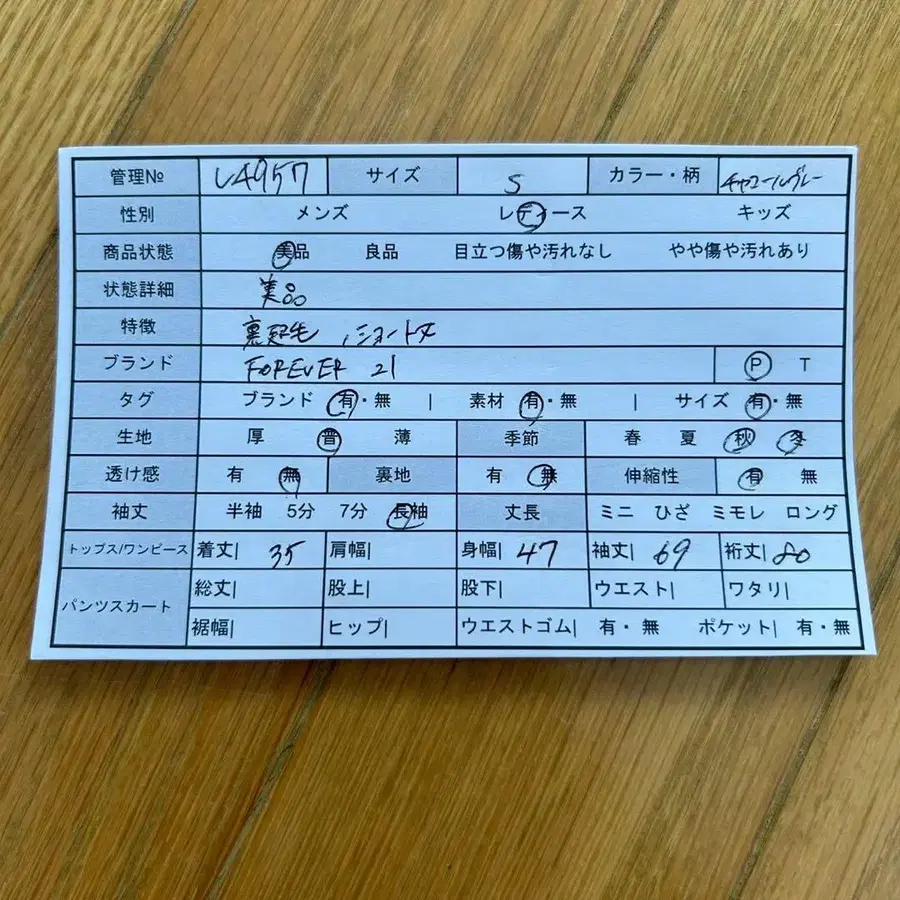 管理№ L4957 サイズ S カラー・柄 チャコールグレー
性別 メンズ レディース キッズ
商品状態 美品 良品 目立つ傷や汚れなし やや傷や汚れあり
状態詳細 美品
特徴 裏起毛 、ショート丈
ブランド FOREVER 21 P T
タグ ブランド 有・無 | 素材 有・無 | サイズ 有・無
生地 厚 普 薄 季節 春 夏 秋 冬
透け感 有 無 裏地 有 無 伸縮性 有 無
袖丈 半袖 5分 7分 長袖 丈長 ミニ ひざ ミモレ ロング
トップス/ワンピース 着丈| 35 肩幅| 身幅| 47 袖丈| 69 裄丈| 80
パンツスカート 総丈| 股上| 股下| ウエスト| ワタリ|
裾幅| ヒップ| ウエストゴム| 有・無 ポケット| 有・無